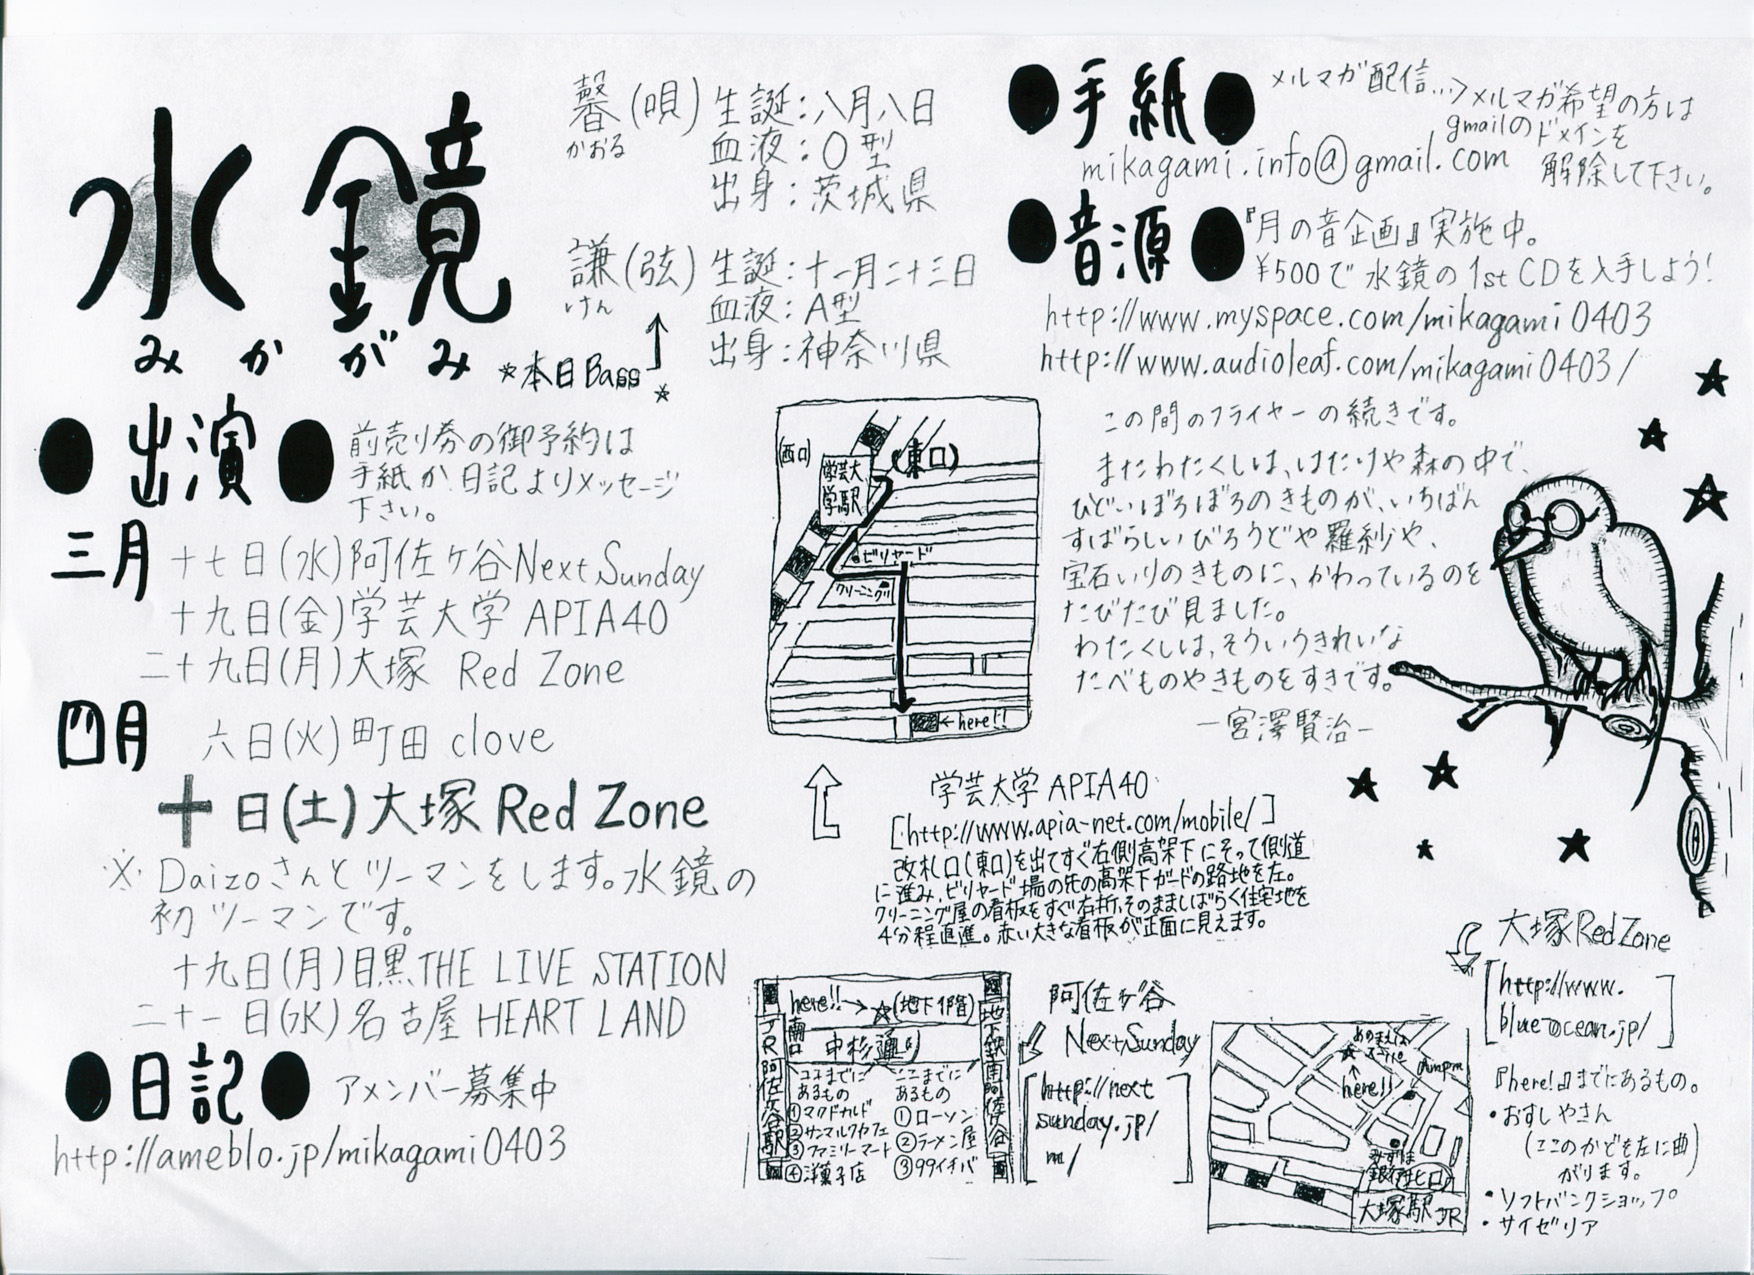 水鏡
みかがみ
馨(唄) 生誕:八月八日
かおる
血液:O型
出身:茨城県
謙(弦) 生誕:十一月二十三日
けん
血液:A型
出身:神奈川県
*本日Bass*
●出演●
前売り券の御予約は
手紙か日記よりメッセージ
下さい。
三月
十七日(水)阿佐ヶ谷Next Sunday
十九日(金)学芸大学 APIA40
二十九日(月)大塚 Red Zone
四月
六日(火)町田 clove
十日(土)大塚 Red Zone
※Daizoさんとツーマンをします。水鏡の
初ツーマンです。
十九日(月)目黒THE LIVE STATION
二十一日(水)名古屋 HEART LAND
●日記●
アメンバー募集中
http://ameblo.jp/mikagami0403
●手紙●
メルマガ配信…>メルマガ希望の方は
gmailのドメインを
解除して下さい。
mikagami.info@gmail.com
●音源●
『月の音企画』実施中。
¥500で水鏡の1stCDを入手しよう!
http://www.myspace.com/mikagami0403
http://www.audioleaf.com/mikagami0403/
この間のフライヤーの続きです。
またわたくしは、はたけや森の中で、
ひどいぼろぼろのきものが、いちばん
すばらしいびろうどや羅紗や、
宝石いりのきものに、かわっているのを
たびたび見ました。
わたくしは、そういうきれいな
たべものやきものをすきです。
ー宮澤賢治ー
(西口)
(東口)
学芸大
学駅
ビリヤード
クリーニング
←here!!
学芸大学 APIA40
[http://www.apia-net.com/mobile/]
改札口(東口)を出てすぐ右側高架下にそって側道
に進み、ビリヤード場の先の高架下ガードの路地を左。
クリーニング屋の看板をすぐ右折、そのまましばらく住宅地を
4分程直進。赤い大きな看板が正面に見えます。
here!!→☆(地下1階)
JR阿佐ヶ谷駅
南口
中杉通り
地下鉄南阿佐ヶ谷
ココまでに
あるもの
①マクドナルド
②サンマルクカフェ
③ファミリーマート
④洋菓子店
ここまでに
あるもの
①ローソン
②ラーメン屋
③99イチバ
阿佐ヶ谷
Next Sunday
[http://next
sunday.jp/
m/]
大塚Red Zone
[http://www.
blue-ocean.jp/]
here!!
ampm
みずほ
銀行
北口
大塚駅 JR
『here!』までにあるもの。
・おすしやさん
(ここのかどを左に曲
がります。)
・ソフトバンクショップ
・サイゼリア